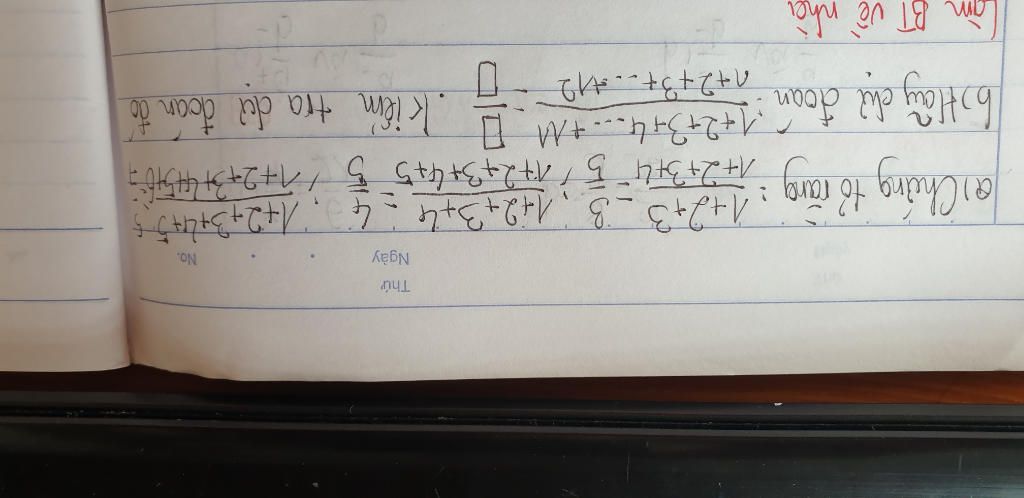 Thứ
Ngày No.
a) Chứng tỏ rằng: 1+2+3/1+2+3+4 = 3/5; 1+2+3+4/1+2+3+4+5 = 4/5; 1+2+3+4+5/1+2+3+4+5+6 = 5
b) Hãy dự đoán: 1+2+3+4...+11/1+2+3+...+12 = □/□. Kiểm tra dự đoán đó
Làm BT về nhà